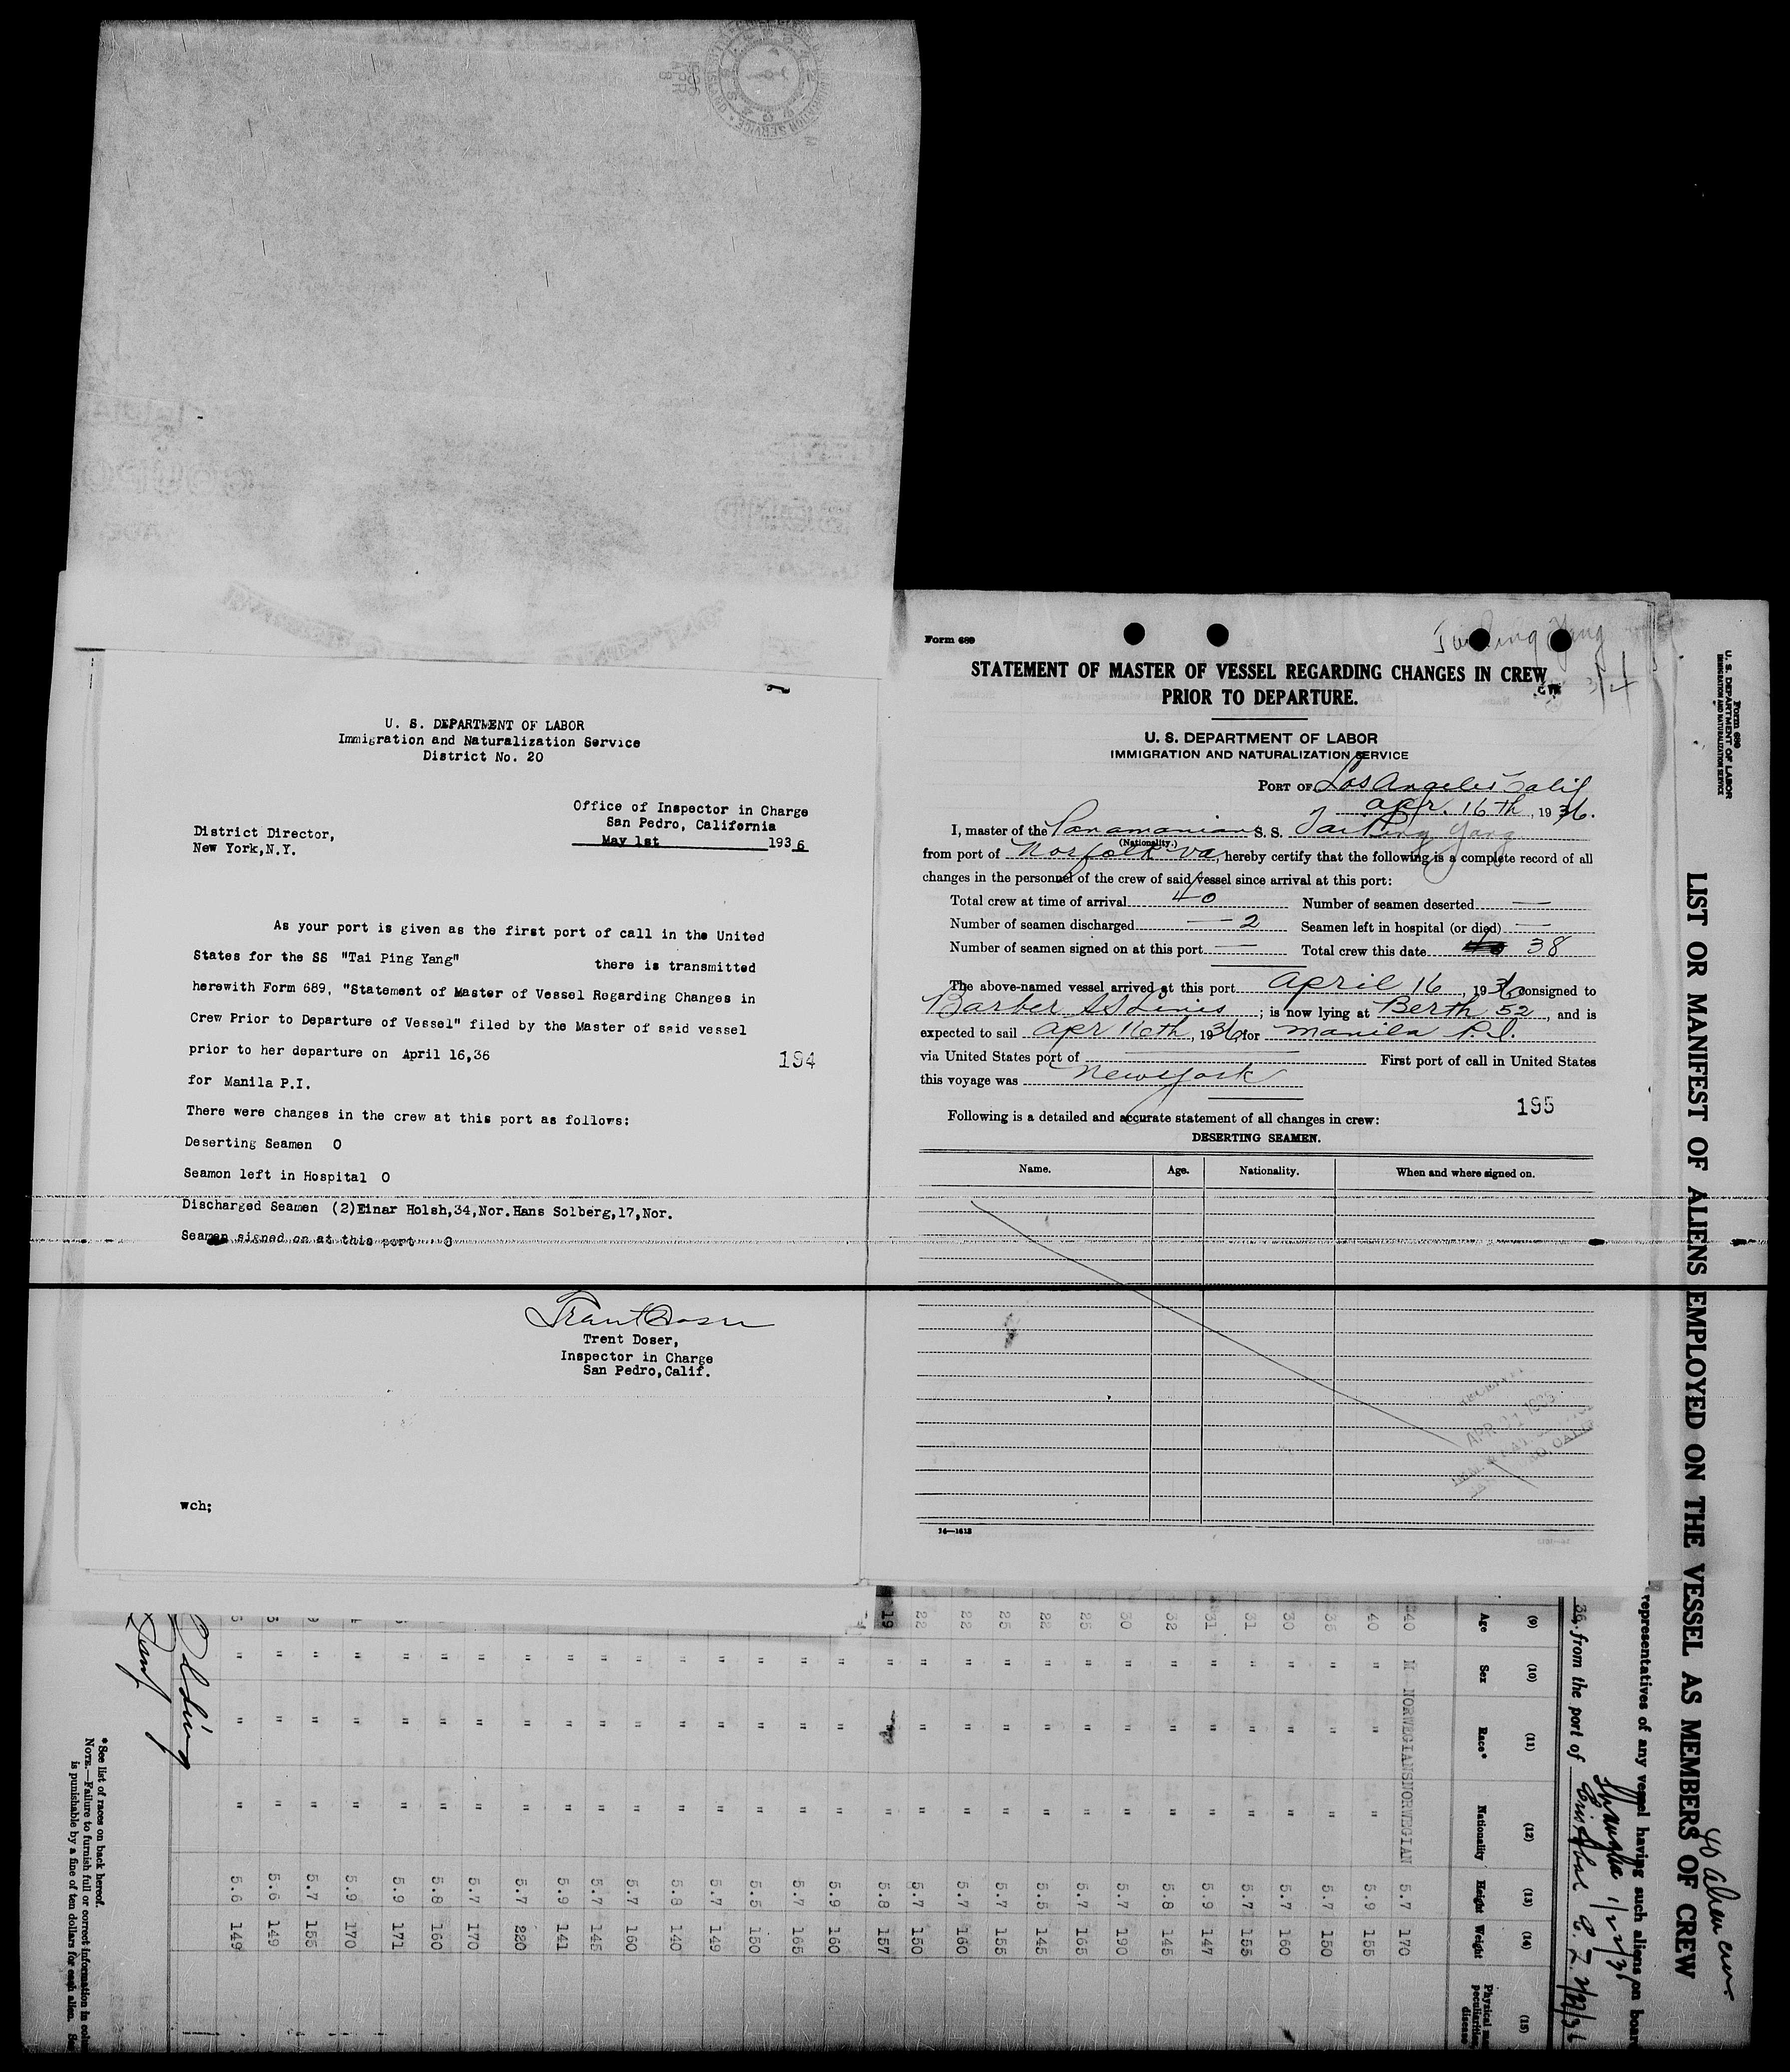 U. S. DEPARTMENT OF LABOR
Immigration and Naturalization Service
District No. 20
Office of Inspector in Charge
San Pedro, California
May 1st 1936
District Director,
New York,N.Y.
As your port is given as the first port of call in the United
States for the SS "Tai Ping Yang" there is transmitted
herewith Form 689, "Statement of Master of Vessel Regarding Changes in
Crew Prior to Departure of Vessel" filed by the Master of said vessel
prior to her departure on April 16,36
194
for Manila P.I.
There were changes in the crew at this port as follows:
Deserting Seamen 0
Seamon left in Hospital 0
Discharged Seamen (2)Einar Holsh,34,Nor.Hans Solberg,17,Nor.
Seamen signed on at this port 0
Trent Doser
Trent Doser,
Inspector in Charge
San Pedro,Calif.
wch;
Form 689
Tai Ping Yang
STATEMENT OF MASTER OF VESSEL REGARDING CHANGES IN CREW
PRIOR TO DEPARTURE.
U. S. DEPARTMENT OF LABOR
IMMIGRATION AND NATURALIZATION SERVICE
PORT OF Los Angeles Calif
Apr. 16th, 1936.
I, master of the Panamanian S. S. Tai Ping Yang
(Nationality.)
from port of Norfolk Va, hereby certify that the following is a complete record of all
changes in the personnel of the crew of said vessel since arrival at this port:
Total crew at time of arrival 40 Number of seamen deserted —
Number of seamen discharged — 2 Seamen left in hospital (or died) —
Number of seamen signed on at this port — Total crew this date 38
The above-named vessel arrived at this port April 16, 1936 consigned to
Barber SS Lines; is now lying at Berth 52, and is
expected to sail Apr 16th, 1936, for Manila P.I.
via United States port of — First port of call in United States
this voyage was New York
195
Following is a detailed and accurate statement of all changes in crew:
DESERTING SEAMEN.
Name. Age. Nationality. When and where signed on.
14—1613
Form 689
U. S. DEPARTMENT OF LABOR
IMMIGRATION AND NATURALIZATION SERVICE
LIST OR MANIFEST OF ALIENS EMPLOYED ON THE VESSEL AS MEMBERS OF CREW
40 alien crew
representatives of any vessel having such aliens on board
36, from the port of Cristobal C. Z.
Shanghai 1/22/36
(9) (10) (11) (12) (13) (14) (15)
Age Sex Race* Nationality Height Weight
40 M NORWEGIANS NORWEGIAN 5.7 170
40 " " " 5.9 155
35 " " " 5.7 150
30 " " " 5.7 160
31 " " " 5.7 155
31 " " " 5.9 147
32 " " " 5.8 145
30 " " " 5.7 190
25 " " " 5.7 165
22 " " " 5.5 145
25 " " " 5.7 155
22 " " " 5.7 160
22 " " " 5.7 150
19 " " " 5.8 157
" " " 5.9 160
" " " 5.7 165
" " " 5.5 150
" " " 5.7 149
" " " 5.8 140
" " " 5.7 160
" " " 5.7 145
" " " 5.9 141
" " " 5.7 220
" " " 5.7 170
" " " 5.8 160
" " " 5.9 171
" " " 5.9 170
" " " 5.7 155
" " " 5.6 149
" " " 5.6 149
* See list of races on back hereof.
NOTE.—Failure to furnish full or correct information in
is punishable by a fine of ten dollars for each alien.